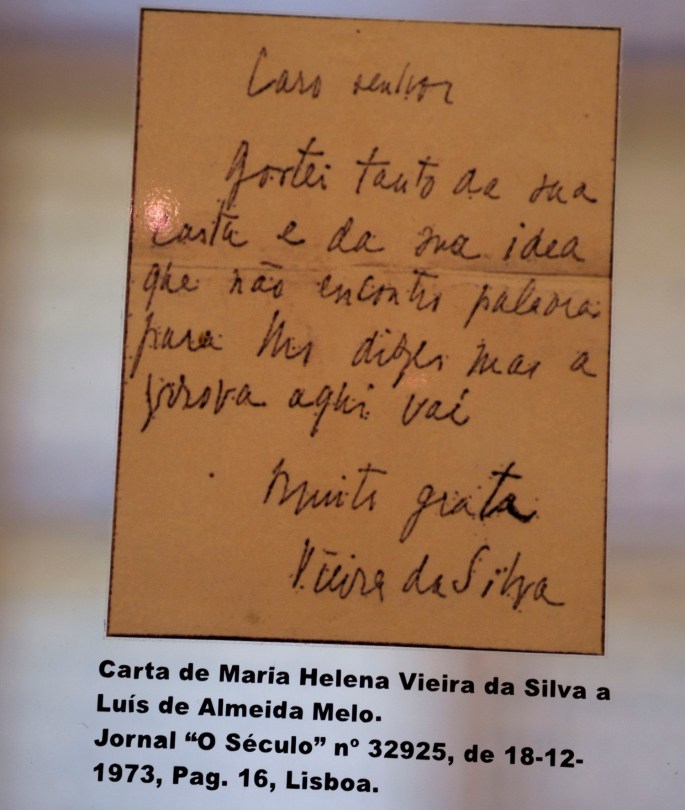 Caro senhor
Gostei tanto da sua
carta e da sua idea
que não encontro palavra
para lhe dizer mas a
prova aqui vai
Muito grata
Vieira da Silva
Carta de Maria Helena Vieira da Silva a
Luís de Almeida Melo.
Jornal “O Século” nº 32925, de 18-12-
1973, Pag. 16, Lisboa.